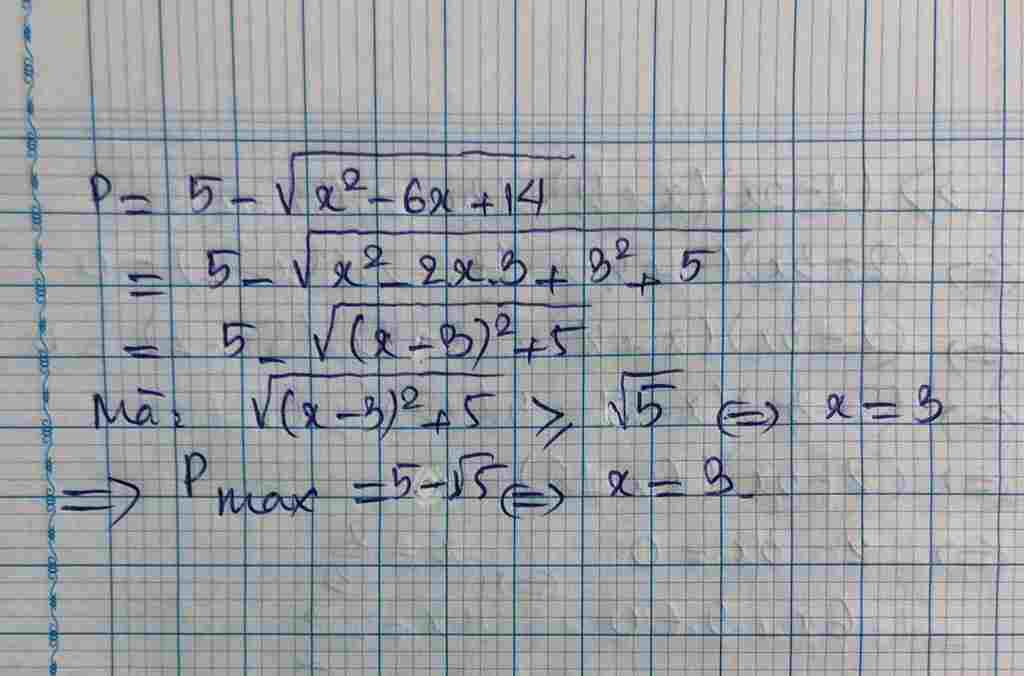 P = 5 - √(x² - 6x + 14)
= 5 - √(x² - 2x.3 + 3² + 5)
= 5 - √((x - 3)² + 5)
Mà: √((x - 3)² + 5) ≥ √5 ⇔ x = 3
⇒ Pmax = 5 - √5 ⇔ x = 3